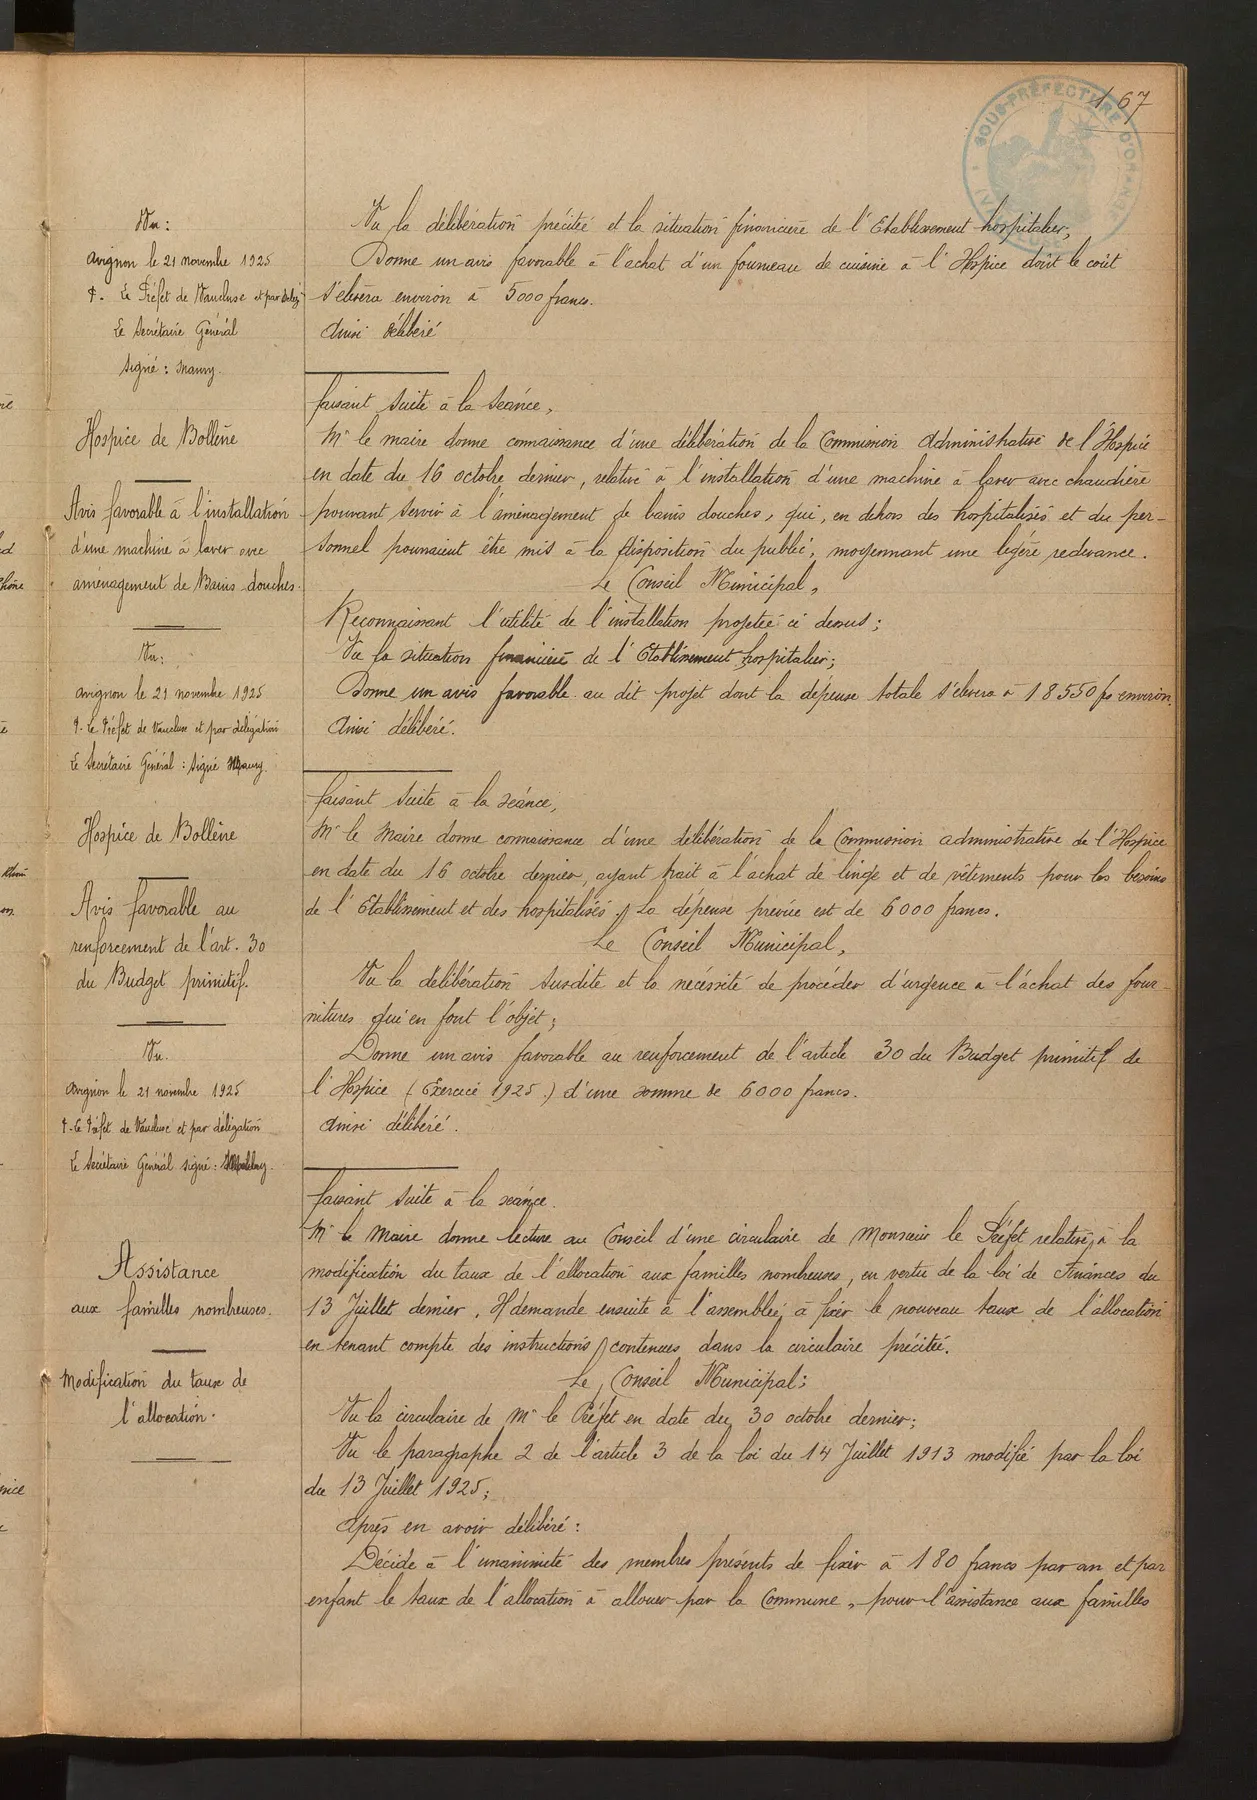 167
SOUS-PRÉFECTURE D'ORANGE
Vu:
Avignon le 21 novembre 1925
P. Le Préfet de Vaucluse et par délég
Le Secrétaire Général
Signé : Maury.
Vu la délibération précitée et la situation financière de l'Etablissement hospitalier,
Donne un avis favorable à l'achat d'un fourneau de cuisine à l'Hospice dont le coût
s'élèvera environ à 5000 francs.
Ainsi délibéré
Hospice de Bollène
Avis favorable à l'installation
d'une machine à laver avec
aménagement de Bains-douches.
Vu:
Avignon le 21 novembre 1925
P. Le Préfet de Vaucluse et par délégation
Le Secrétaire Général : Signé Maury.
faisant suite à la séance,
Mr le maire donne connaissance d'une délibération de la Commission Administrative de l'Hospice
en date du 16 octobre dernier, relative à l'installation d'une machine à laver avec chaudière
pouvant servir à l'aménagement de bains douches, qui, en dehors des hospitalisés et du per-
sonnel pourraient être mis à la disposition du public, moyennant une légère redevance.
Le Conseil Municipal,
Reconnaissant l'utilité de l'installation projetée ci dessus;
Vu la situation financière de l'Etablissement hospitalier;
Donne un avis favorable au dit projet dont la dépense totale s'élèvera à 18550 frs environ.
Ainsi délibéré.
Hospice de Bollène
Avis favorable au
renforcement de l'art. 30
du Budget primitif.
Vu.
Avignon le 21 novembre 1925
P. Le Préfet de Vaucluse et par délégation
Le Secrétaire Général signé :
faisant suite à la séance,
Mr le Maire donne connaissance d'une délibération de la Commission administrative de l'Hospice
en date du 16 octobre dernier, ayant trait à l'achat de linge et de vêtements pour les besoins
de l'Etablissement et des hospitalisés. La dépense prévue est de 6000 francs.
Le Conseil Municipal,
Vu la délibération susdite et la nécessité de procéder d'urgence à l'achat des four-
nitures qui en font l'objet;
Donne un avis favorable au renforcement de l'article 30 du Budget primitif de
l'Hospice (Exercice 1925.) d'une somme de 6000 francs.
Ainsi délibéré.
Assistance
aux familles nombreuses.
Modification du taux de
l'allocation.
faisant suite à la séance.
Mr le Maire donne lecture au Conseil d'une circulaire de Monsieur le Préfet relative à la
modification du taux de l'allocation aux familles nombreuses, en vertu de la loi de Finances du
13 Juillet dernier. Il demande ensuite à l'assemblée, à fixer le nouveau taux de l'allocation
en tenant compte des instructions contenues dans la circulaire précitée.
Le Conseil Municipal;
Vu la circulaire de Mr le Préfet en date du 30 octobre dernier;
Vu le paragraphe 2 de l'article 3 de la loi du 14 Juillet 1913 modifié par la loi
du 13 Juillet 1925;
Après en avoir délibéré :
Décide à l'unanimité des membres présents de fixer à 180 francs par an et par
enfant le taux de l'allocation à allouer par la Commune, pour l'assistance aux familles